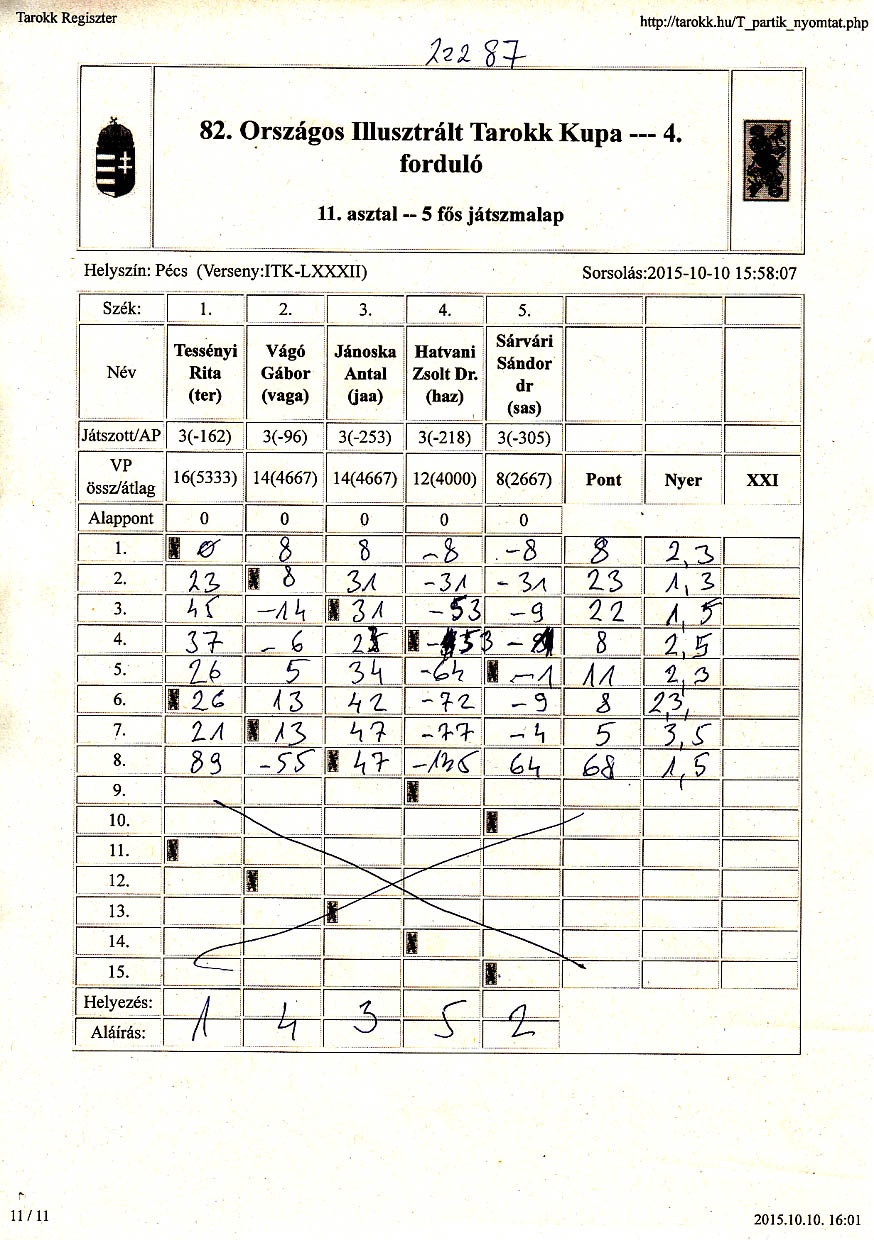 Tarokk Regiszter
http://tarokk.hu/T_partik_nyomtat.php
22287
82. Országos Illusztrált Tarokk Kupa --- 4.
forduló
11. asztal -- 5 fős játszmalap
Helyszín: Pécs (Verseny:ITK-LXXXII)
Sorsolás:2015-10-10 15:58:07
Szék: 1. 2. 3. 4. 5.
Név
Tessényi Rita (ter)
Vágó Gábor (vaga)
Jánoska Antal (jaa)
Hatvani Zsolt Dr. (haz)
Sárvári Sándor dr (sas)
Játszott/AP 3(-162) 3(-96) 3(-253) 3(-218) 3(-305)
VP össz/átlag 16(5333) 14(4667) 14(4667) 12(4000) 8(2667) Pont Nyer XXI
Alappont 0 0 0 0 0
1. 0 8 8 -8 -8 8 2,3
2. 23 8 31 -31 -31 23 1,3
3. 45 -14 31 -53 -9 22 1,5
4. 37 -6 8 2,5
5. 26 5 34 -64 -1 11 2,3
6. 26 13 42 -72 -9 8 2,3,
7. 21 13 47 -77 -4 5 3,5
8. 89 -55 47 64 68 1,5
9.
10.
11.
12.
13.
14.
15.
Helyezés:
Aláírás: 1 4 3 5 2
11 / 11
2015.10.10. 16:01